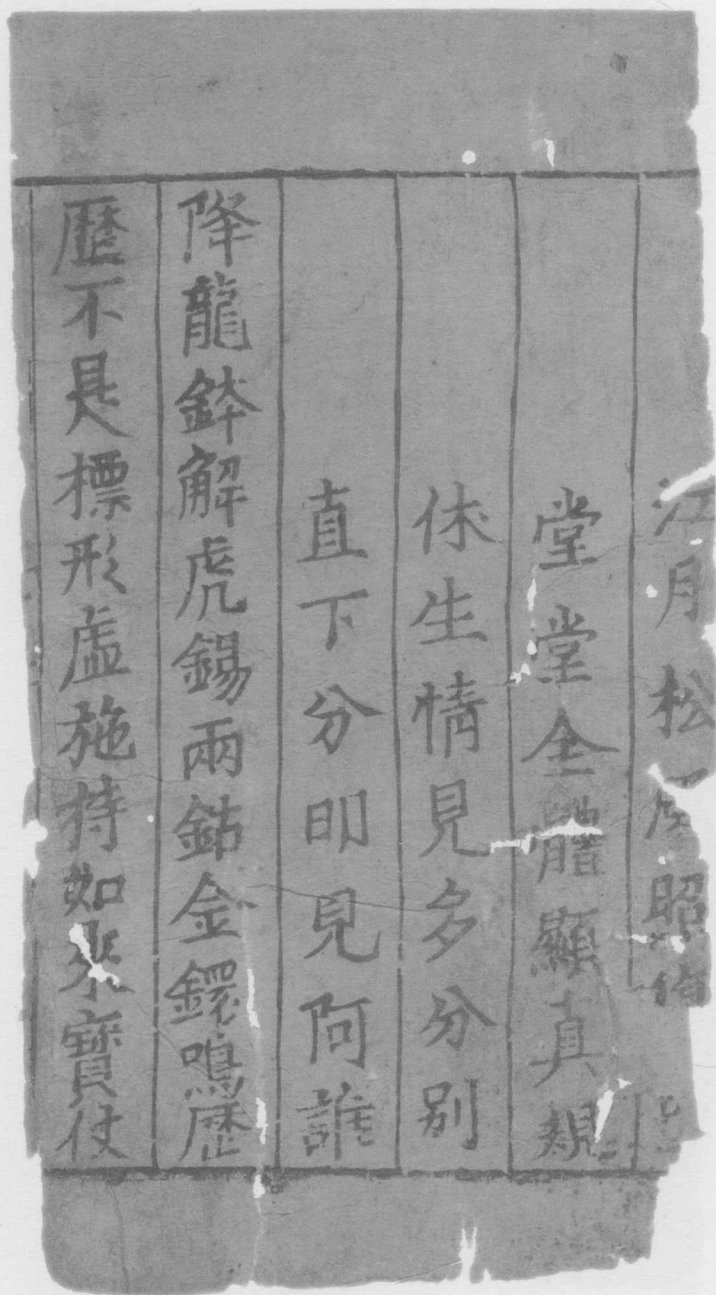 江月松照
堂堂全體顯真規
休生情見多分別
直下分明見阿誰
降龍鉢解虎錫兩鈷金鐶鳴歷
歷不是標形虛施持如來寶仗